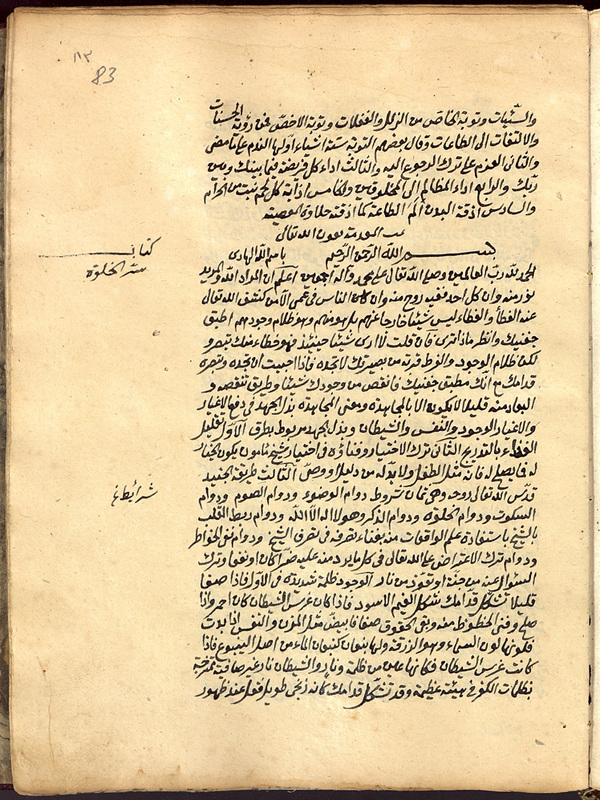 ٨٣
83
والسيئات وتوبة الخاص من الزلل والغفلات وتوبة الاخص من رؤية الحسنات
والالتفات الى الطاعات وقال بعضهم التوبة ستة اشياء اولها الندم على ما مضى
والثانى العزم على ترك الرجوع اليه والثالث اداء كل فريضة فيما بينك وبين
ربك والرابع اداء المظالم الى المخلوقين والخامس اذابة كل لحم نبت من الحرام
والسادس اذقة البدن ألم الطاعة كما اذقته حلاوة المعصية
تمت المقدمة بعون الله تعالى
بسم الله الرحمن الرحيم باسم الله الهادى
كتاب
ستر الخلوة
الحمد لله رب العالمين وصلى الله تعالى على محمد وآله اجمعين اعلم ان المراد الله والمريد
نور منه وان كل احد ففيه روح منه وان كان الناس فى عمى الا من كشف الله تعالى
عنه الغطأ والغطاء ليس شيئا خارجا عنهم بل هو منهم وهو ظلام وجودهم اطبق
جفنيك وانظر ماذا ترى فان قلت لا ارى شيئا حينئذ فهو خطاء منك تبصر و
لكن ظلام الوجود لفرط قربه من بصيرتك لا تجده فاذا احببت ان تجده وتبصره
قدامك مع انك مطبق جفنيك فانقص من وجودك شيئا وطريق تنقصه و
ابعاد منه قليلا لا يكون الا بالمجاهدة ومعنى المجاهدة بذل الجهد فى دفع الاغيار
والاغيار الوجود والنفس والشيطان وبذل الجهد مربوط بطرق الاول تقليل
الغذاء بالتدريج الثانى ترك الاختيار وفناؤه فى اختيار شيخ مأمون يكون يختار
له ما يصلح له فانه مثل الطفل ولا بد له من دليل ووصى الثالث طريقة الجنيد
شرائط ع
قدس الله تعالى روحه وهى ثمان شروط دوام الوضوء ودوام الصوم ودوام
السكوت ودوام الخلوة ودوام الذكر وهو لا اله الا الله ودوام ربط القلب
بالشيخ باستفادة علم الواقعات منه بفناء تصرفه فى تصرف الشيخ ودوام نفى الخواطر
ودوام ترك الاعتراض على الله تعالى فى كل ما يرد منه عليه ضرا كان او نفعا وترك
السؤال عنه من جنة او تعوذ من نار الوجود ظلمة شديدة فى الاول فاذا صفا
قليلا تشكل قدامك بشكل الغيم الاسود فاذا كان عرش الشيطان كان احمر واذا
صلح وفنى الحظوظ منه وبقى الحقوق صفا فابيض مثل المزن والنفس اذا بدت
فلونها لون السماء وهو الزرقة ولها نبعان كنبعان الماء من اصل الينبوع فاذا
كانت عرش الشيطان فكانها عين من ظلمة ونار والشيطان نار غير صافية ممتزجة
بظلمات الكفر فى هيئة عظيمة وقد تشكل قدامك كانه زنجى طويل فقل عند ظهور